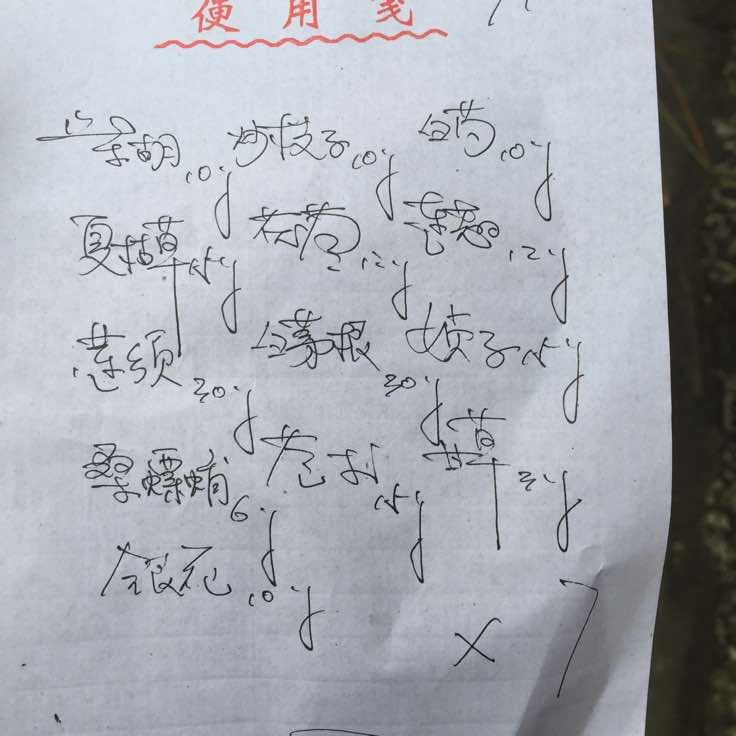 便用笺
柴胡10g 炒枝子10g 白芍10g
夏枯草15g 12g 连翘12g
莲须30g 白茅根30g 女贞子15g
桑螵蛸6g 15g 甘草3g
金银花10g
×7